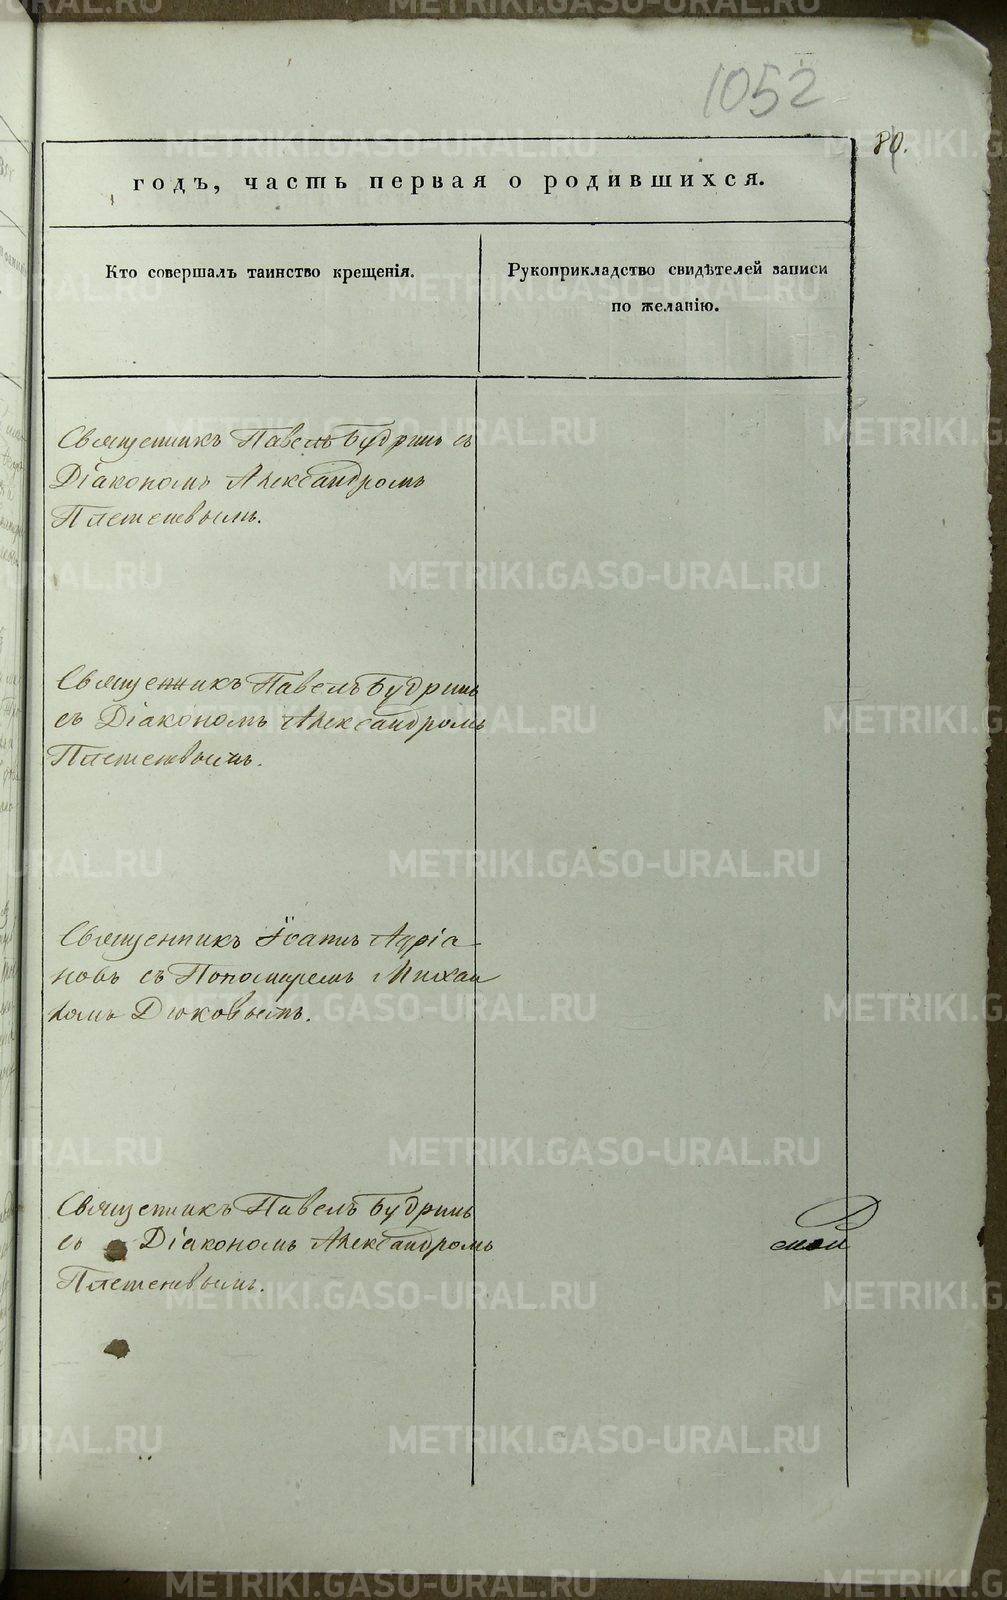 1052
80.
годъ, часть первая о родившихся.
Кто совершалъ таинство крещенія.
Рукоприкладство свидѣтелей записи
по желанію.
Священникъ Павелъ Будринъ съ
Діакономъ Александромъ
Плетеневымъ.
Священникъ Павелъ Будринъ
съ Діакономъ Александромъ
Плетеневымъ.
Священникъ Іоаннъ Адріа-
новъ съ Пономаремъ Михаи
ломъ Дюковымъ.
Священникъ Павелъ Будринъ
съ Діакономъ Александромъ
Плетеневымъ.
METRIKI.GASO-URAL.RU